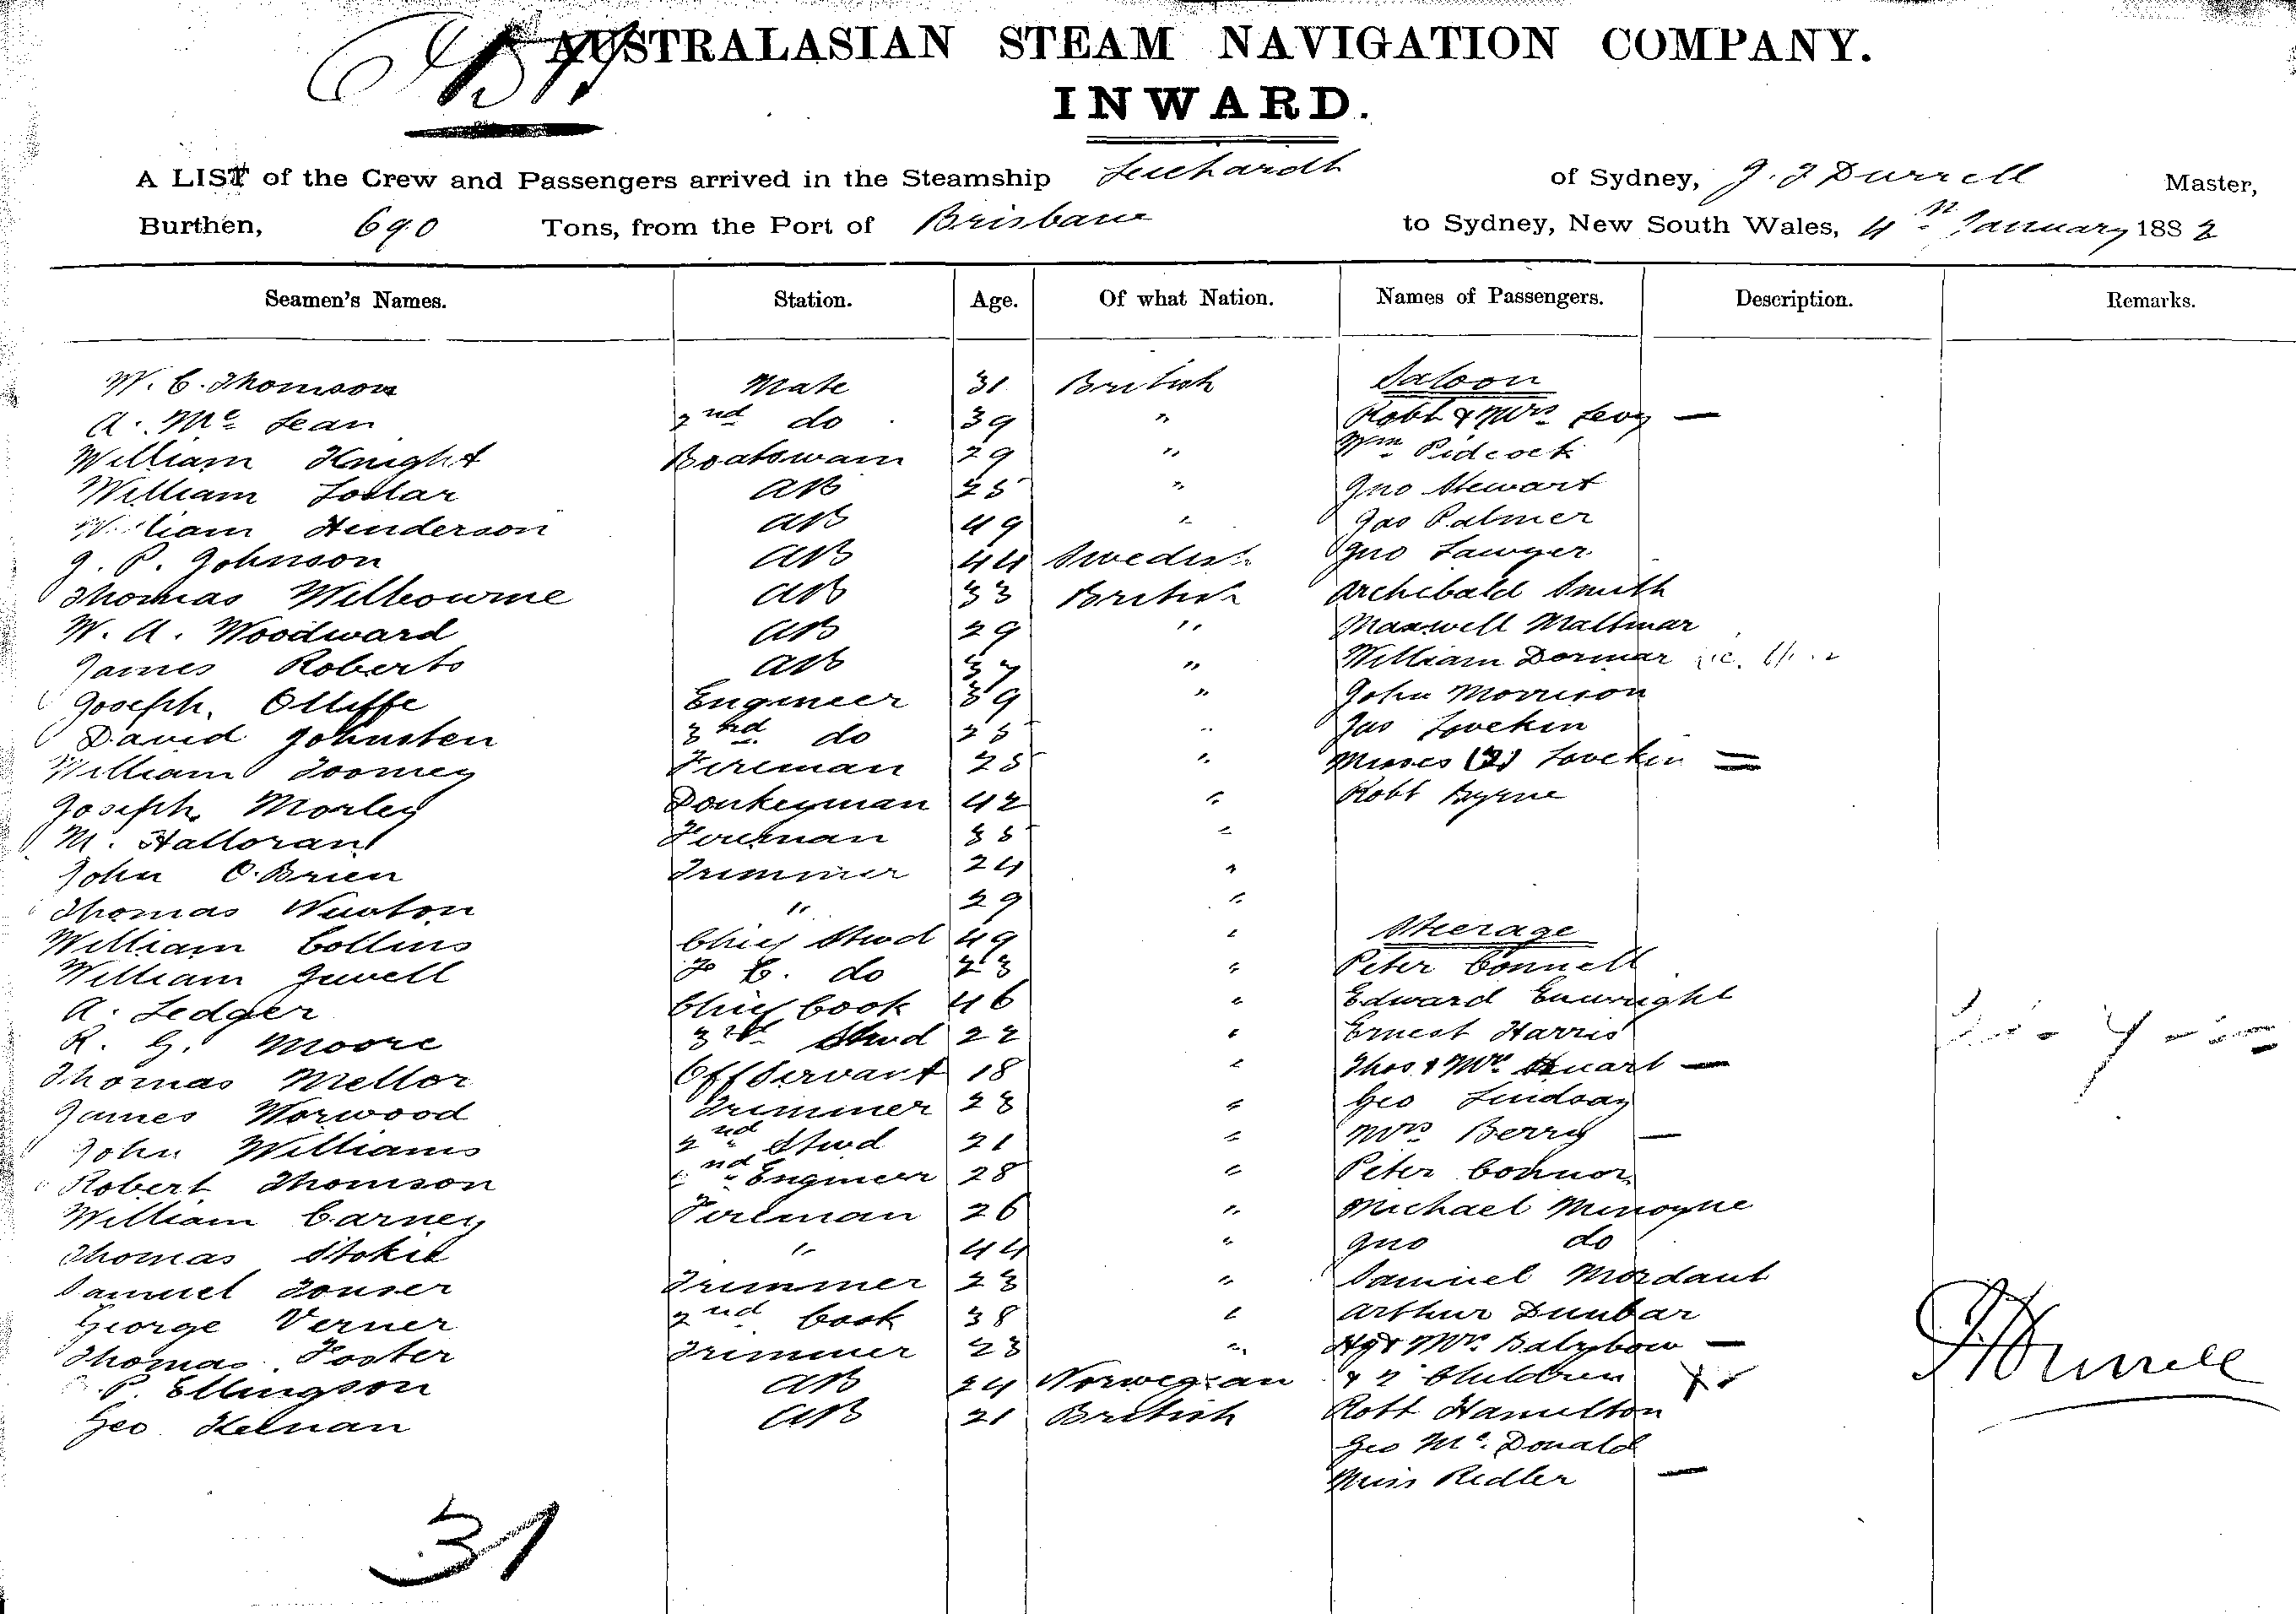 AUSTRALASIAN STEAM NAVIGATION COMPANY.
INWARD.
A LIST of the Crew and Passengers arrived in the Steamship Leichardt of Sydney, J. J Durrell Master,
Burthen, 690 Tons, from the Port of Brisbane to Sydney, New South Wales, 4th January 1882
Seamen's Names. Station. Age. Of what Nation. Names of Passengers. Description. Remarks.
W. C. Thomson Mate 31 British Saloon
A. Mc Lean 2nd do 39 " Robt & Mrs Levy —
William Knight Boatswain 29 " Wm Pidcock
William AB 25 " Jno Stewart
William Henderson AB 49 " Jas Palmer
J. P. Johnson AB 44 Swedish Jno Sawyer
Thomas Welbourne AB 33 British Archebald Smith
W. A. Woodward AB 29 " Maxwell Maltmar
James Roberts AB 37 " William Dormar
Joseph Olliffe Engineer 39 " John Morrison
David Johnston 3rd do 25 " Jas Lovekin
William Toomey Fireman 25 " Misses (2) Lovekin =
Joseph Morley Donkeyman 42 " Robt Byrne
M. Halloran Fireman 35 "
John O.Brien Trimmer 24 "
Thomas Newton " 29 "
William Collins Chief Stwd 49 " Steerage
William Jewell F C. do 23 " Peter Connell
A. Ledger Chief Cook 46 " Edward Enwright
R. G. Moore 3rd Stwd 22 " Ernest Harris
Thomas Mellor Off Servant 18 " Thos & Mrs Stuart —
James Norwood Trimmer 23 " Geo Lindsay
John Williams 2nd Stwd 21 " Mrs Berry —
Robert Thomson 2nd Engineer 28 " Peter Connor
William Carney Fireman 26 " Michael Minogue
Thomas Stokes " 44 " Jno do
Samuel Touser Trimmer 23 " Samuel Mordaut
George Verner 2nd Cook 38 " Arthur Dunbar
Thomas Foster Trimmer 23 " Hy & Mrs —
P. Ellingson AB 24 Norwegian & 2 Children
Geo Keenan AB 21 British Robt Hamilton
Geo Mc. Donald
Miss Redler —
J J Durrell
31